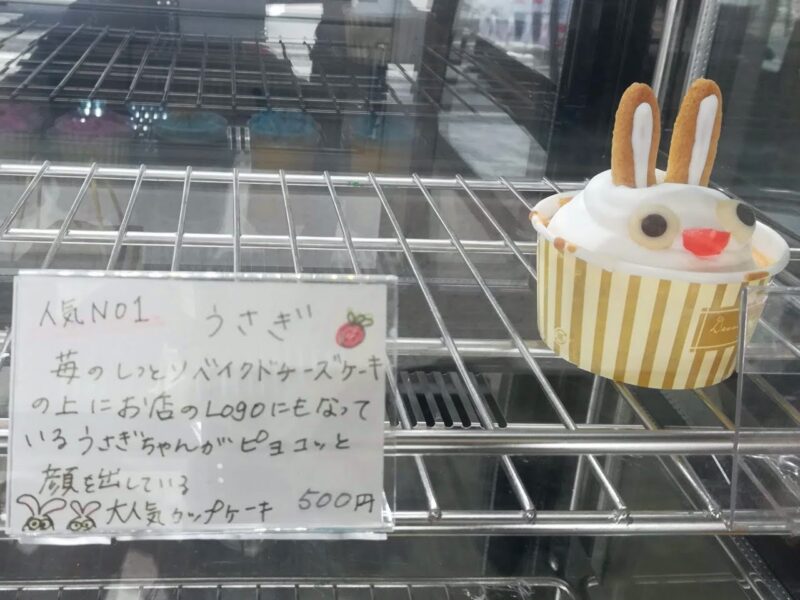 人気NO1 うさぎ
苺のしっとりベイクドチーズケーキ
の上にお店のLogoにもなって
いるうさぎちゃんがピョコッと
顔を出している
大人気カップケーキ 500円